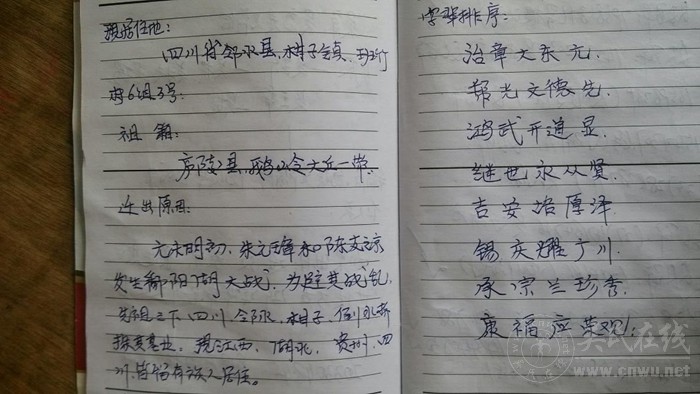 现居住地：
四川省邻水县,柑子镇,
村6组3号
祖籍：
庐陵县,大丘一带.
迁出原因.
元末明初,朱元璋和陈友谅
发生鄱阳湖大战,为避其战乱,
先祖三下四川邻水,柑子,
探亲置业。现江西,湖北,贵州,四
川,皆留有族人居住。
字辈排序：
治章大东元.
邦光文德先.
鸿武开道显.
继也永从贤.
吉安培厚泽.
锡庆耀广川.
承宗兰珍秀.
康福应荣观!
吴氏在线
www.cnwu.net